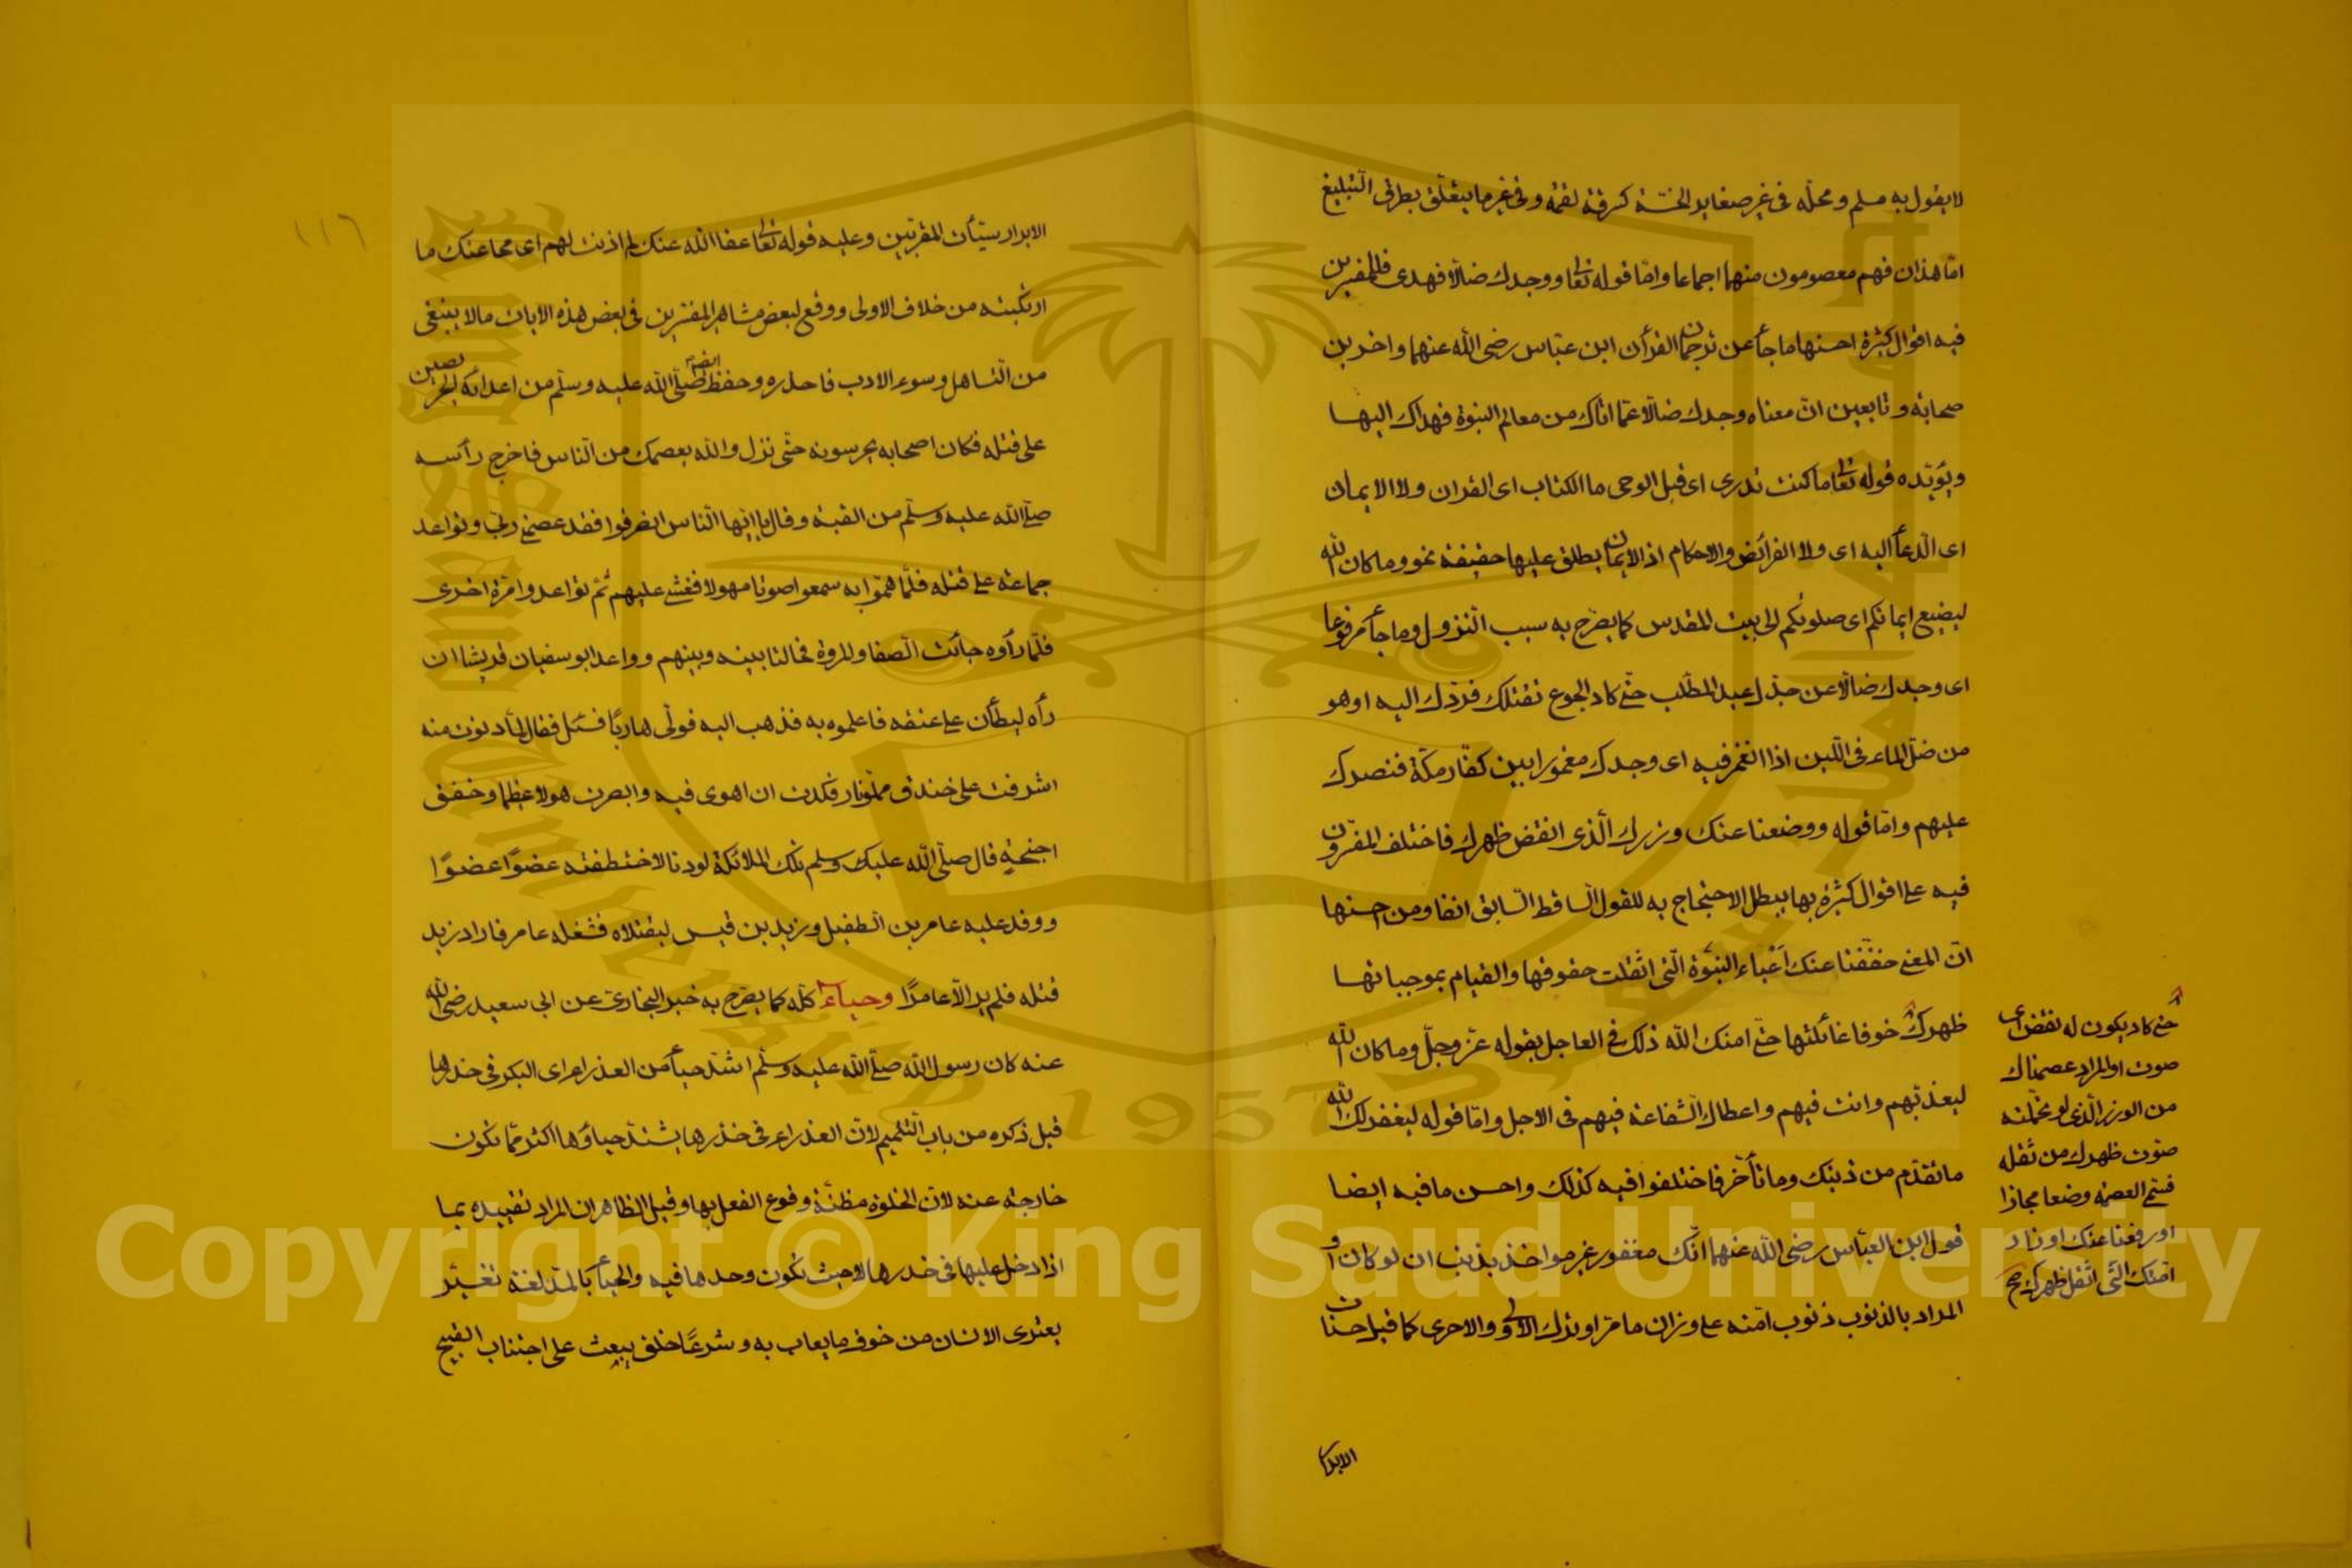 لا يقول به مسلم ومحلّه فى غير صغاير الخسّة كسرقة لقمة وفى غير ما يتعلّق بطرق التّبليغ
امّا هذان فهم معصومون منهما اجماعا وامّا قوله تعالى ووجدك ضالّا فهدى فللمفسرين
فيه اقوال كثيرة احسنها ما جأ عن ترجمان القرأن ابن عبّاس رضى الله عنهما واخرين
صحابة وتابعين انّ معناه وجدك ضالّا عمّا اتاك من معالم النبوة فهداك اليها
ويؤيّده قوله تعالى ما كنت تدرى اى قبل الوحى ما الكتاب اى القران ولا الايمان
اى الّدعأ اليه اى ولا الفرائض والاحكام اذ الايمان يطلق عليها حقيقة نحو وما كان الله
ليضيع ايمانكم اى صلوتكم الى بيت المقدس كما يصّرح به سبب النزول وما جأ مرفوعا
اى وجدك ضالّا عن جدّك عبد المطّلب حتى كاد الجوع تقتلك فردّك اليه او هو
من ضلّ الماء فى اللّبن اذا انغمر فيه اى وجدك مغمورا بين كفّار مكّة فنصرك
عليهم وامّا قوله ووضعنا عنك وزرك الّذى انقض ظهرك فاختلف المفسّرون
فيه على اقوال كثيرة بها يبطل الاحتجاج به للقول السّاقط السّابق انفا ومن احسنها
انّ المعنى خفّفنا عنك أعْباء النبوّة الّتى اثقلت حقوقها والقيام بموجباتها
ظهرك خوفا غائلتها حتى امنك الله ذلك فى العاجل بقوله عزّ وجلّ وما كان الله
ليعذبّهم وانت فيهم واعطاك الشّفاعة فيهم فى الاجل وامّا قوله ليغفر لك الله
ما تقدّم من ذنبك وما تأخّر فاختلفوا فيه كذلك واحسن ما فيه ايضا
قول ابن العبّاس رضى الله عنهما انّك مغفور غير مواخذ بذنب ان لو كان او
المراد بالذنوب ذنوب امّته على وزان ما مرّ او ترك الاولى والاحرى كما قيل حسنات
الابرار
حتى كاد يكون له نقض اى
صوت او المراد عصمناك
من الوزر الّذى لو تحمّلته
صوّت ظهرك من ثقله
فسمّى العصمة وضعا مجازا
او رفعنا عنك اوزار
امّتك الّتى اثقل ظهرك صح
١١٦
الابرار سيّأت المقرّبين وعليه قوله تعالى عفا الله عنك لم اذنت لهم اى محا عنك ما
ارتكبته من خلاف الاولى ووقع لبعض مشاهير المفسّرين فى بعض هذه الايات مالا ينبغى
من التّساهل وسوء الادب فاحذره وحفظ ايضا صلّى الله عليه وسلّم من اعدائه الحريصين
على قتله فكان اصحابه يحرسونه حتّى نزل والله يعصمك من النّاس فاخرج رأسه
صلّى الله عليه وسلّم من القبة وقال يا ايّها النّاس انصرفوا فقد عصمنى ربّى وتواعد
جماعة على قتله فلمّا همّوا به سمعوا صوتا مهولا فغشى عليهم ثمّ تواعدوا مرّة اخرى
فلمّا رأوه جأت الصّفا والمروة فحالتا بينه وبينهم وواعد ابو سفيان قريشا ان
رأه ليطأن على عنقه فاعلموه به فذهب اليه فولّى هاربًا فسئل فقال لمّا دنوت منه
اشرفت على خندق مملّو نار فكدت ان اهوى فيه وابصرت هولا عظيما وخفق
اجنحة قال صلّى الله عليك وسلم تلك الملائكة لو دنا لاختطفته عضوًا عضوًا
ووفد عليه عامر بن الطفيل وزيد بن قيس ليقتلاه فشغله عامر فاراد زيد
قتله فلم ير الّا عامرًا وحياء كلّه كما يصّرح به خبر البخارىّ عن ابى سعيد رضى الله
عنه كان رسول الله صلّى الله عليه وسلّم اشدّ حيأ من العذراء اى البكر فى خدرها
قيل ذكره من باب التّتميم لانّ العذراء فى خدرها يشتدّ حياؤها اكثر ممّا تكون
خارجة عنه لانّ الخلوة مظنّة وقوع الفعل بها وقيل الظاهر ان المراد تقييده بما
اذا دخل عليها فى خدرها لا حيث تكون وحدها فيه والحيأ بالمدّ لغة تغيّر
يعترى الانسان من خوف ما يعاب به وشرعًا خلق يبعث على اجتناب القبيح
Copyright © King Saud University
King Saud University
1957